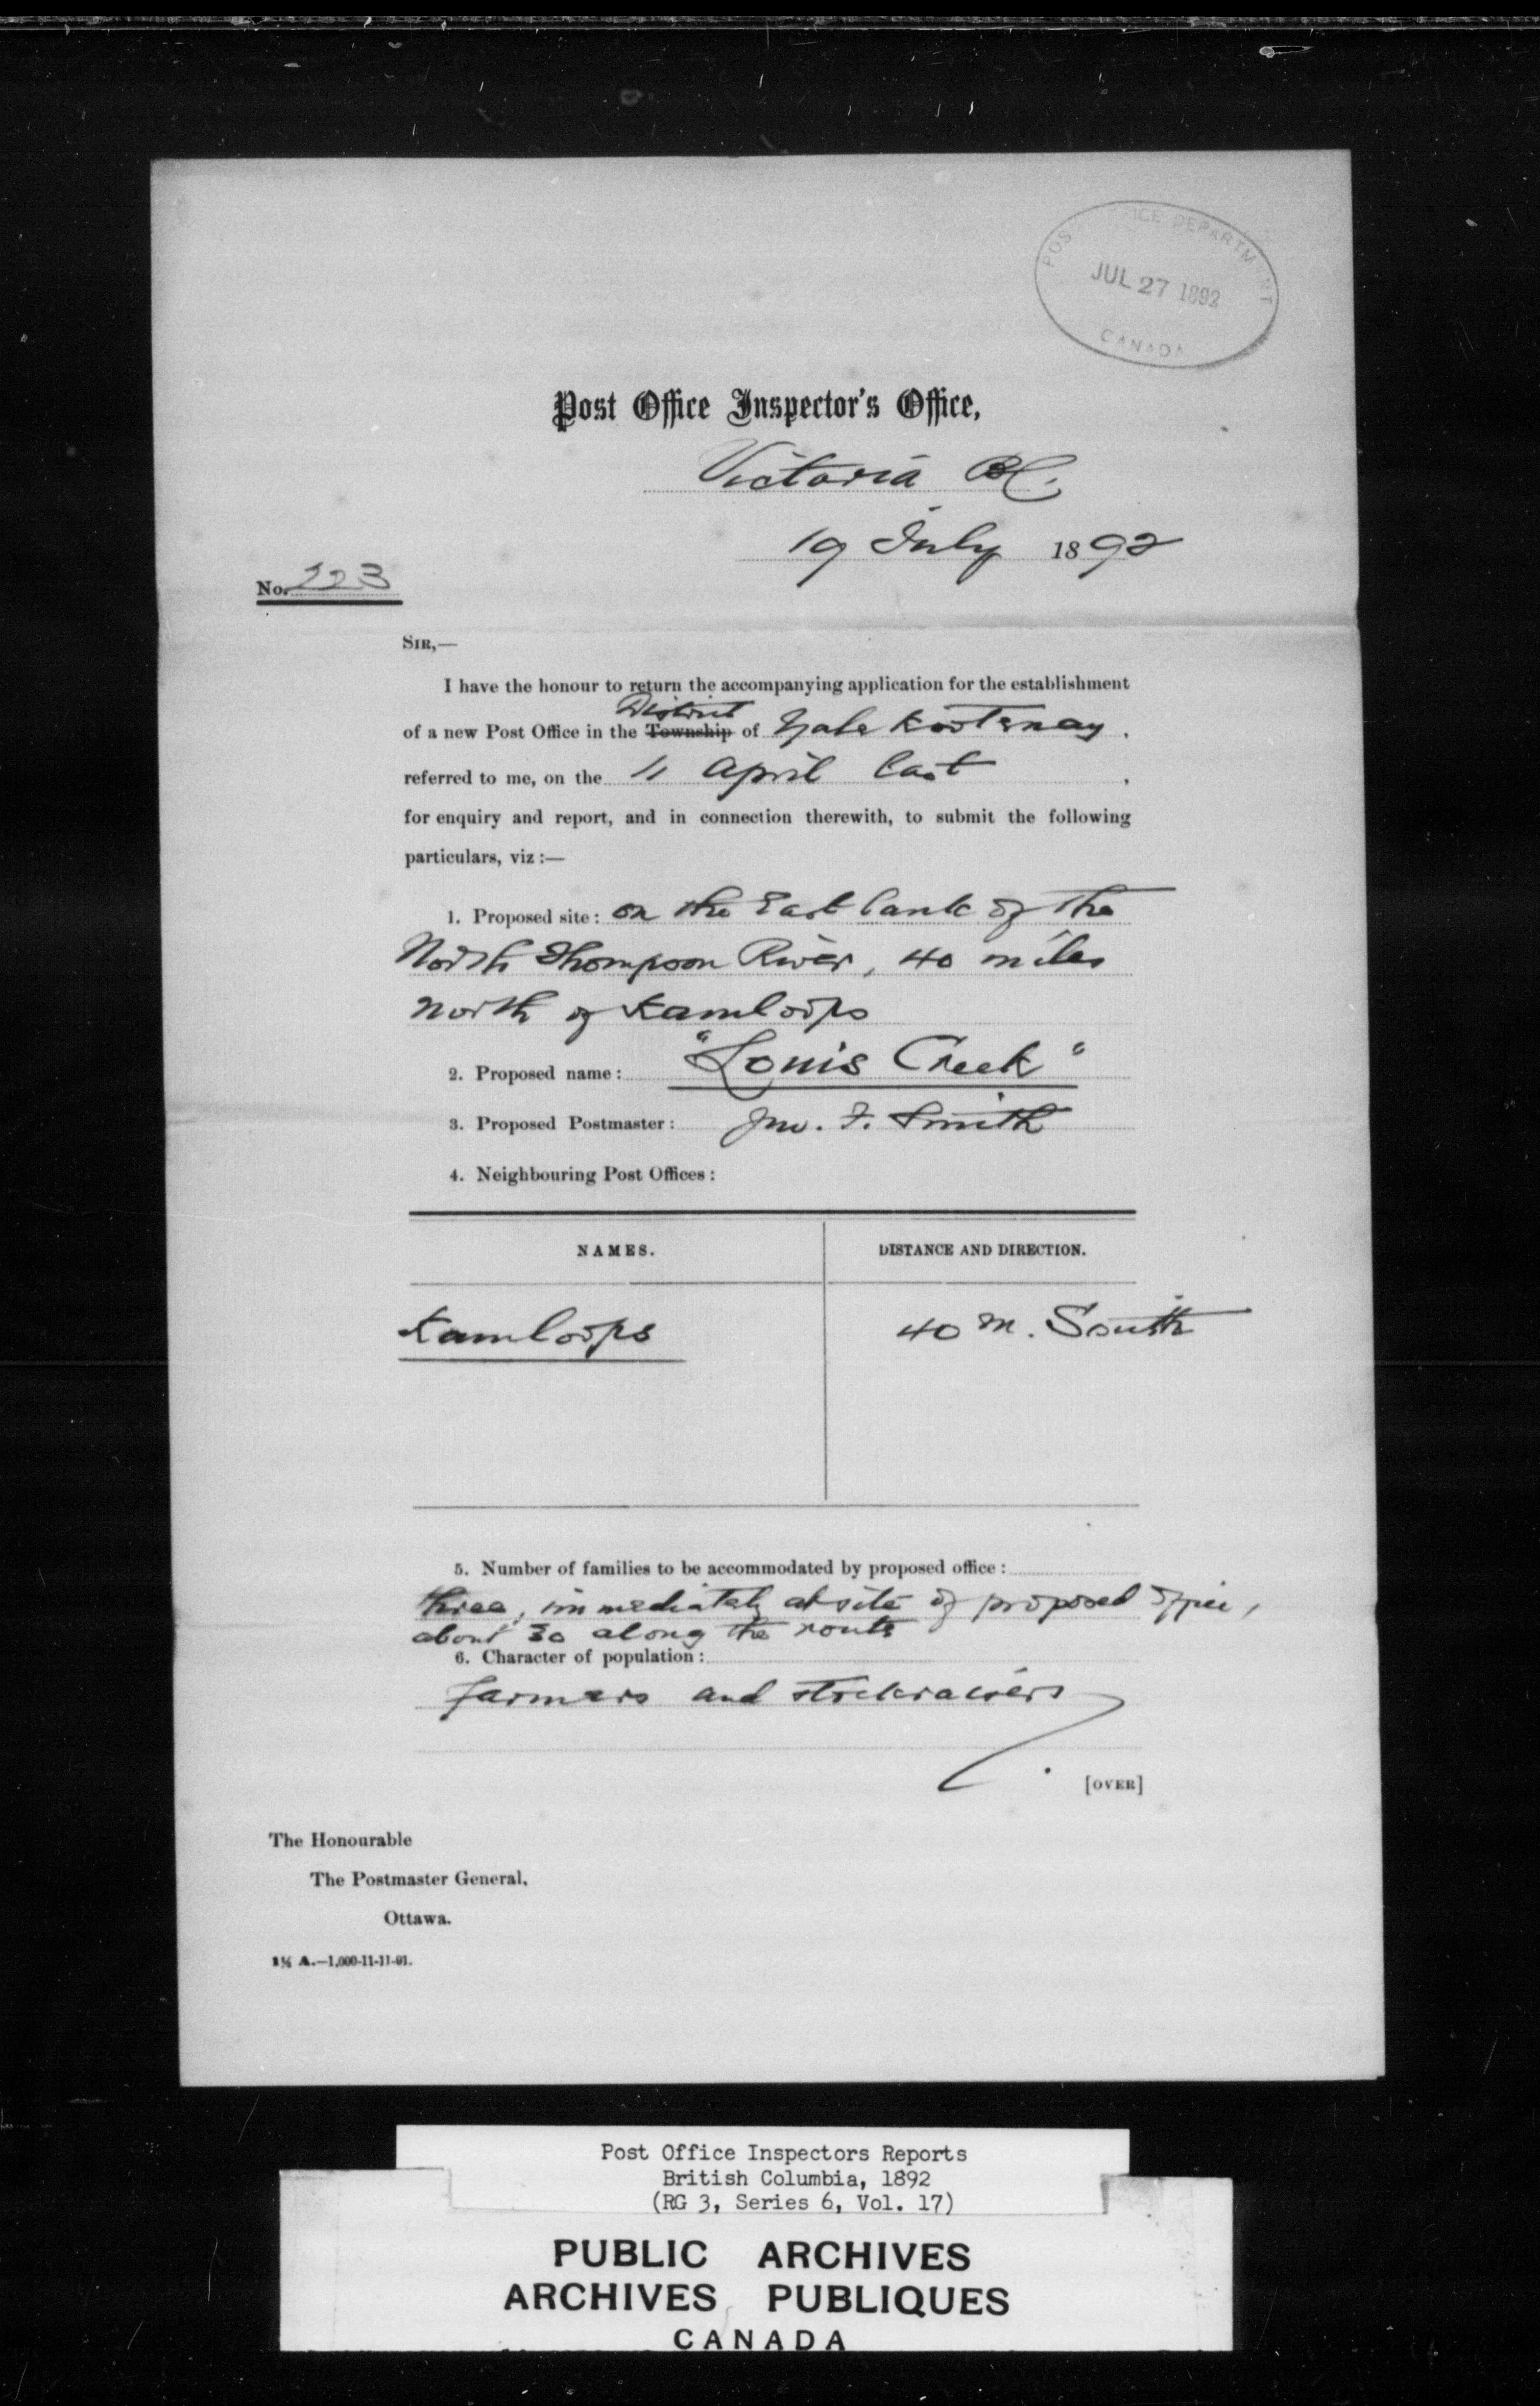 POS ICE DEPARTM NT
JUL 27 1892
CANADA
Post Office Inspector's Office,
Victoria BC.
19 July 1892
No. 223
SIR,—
I have the honour to return the accompanying application for the establishment
District
of a new Post Office in the Township of Yale Kootenay.
referred to me, on the 11 April last,
for enquiry and report, and in connection therewith, to submit the following
particulars, viz:—
1. Proposed site: on the East bank of the
North Thompson River, 40 miles
north of Kamloops
2. Proposed name: "Louis Creek"
3. Proposed Postmaster: Jno. F. Smith
4. Neighbouring Post Offices:
NAMES. DISTANCE AND DIRECTION.
Kamloops 40 m. South
5. Number of families to be accommodated by proposed office:
three, immediately at site of proposed office,
about 30 along the route
6. Character of population:
farmers and stockraisers
[OVER]
The Honourable
The Postmaster General,
Ottawa.
A.—1,000-11-11-91.
Post Office Inspectors Reports
British Columbia, 1892
(RG 3, Series 6, Vol. 17)
PUBLIC ARCHIVES
ARCHIVES PUBLIQUES
CANADA